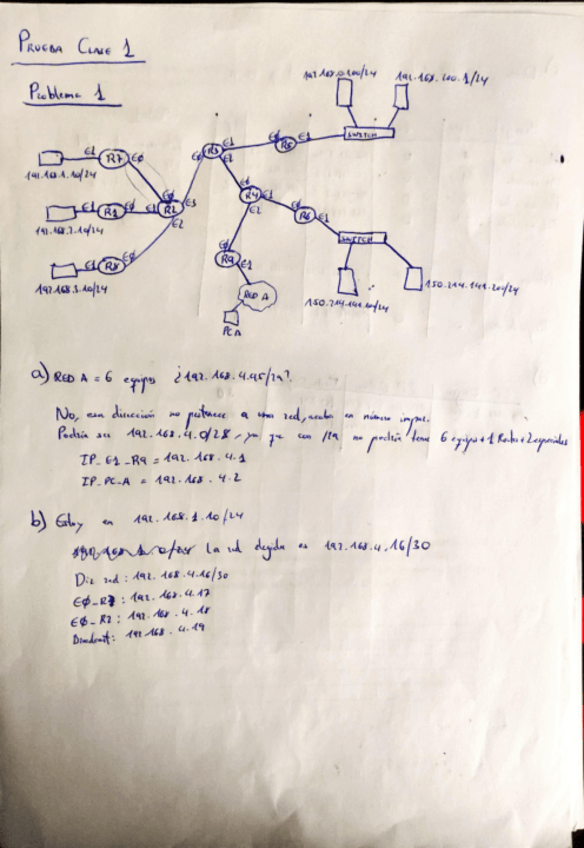 PRUEBA CLASE 1
Problema 1
192.168.100.1/24
SWITCH
E1
R3
E1
E2
R7
EØ
192.168.1.10/24
E1
R1
E1
R2
E3
E2
R4
E1
E2
R6
E1
SWITCH
192.168.2.10/24
E1
R8
EØ
192.168.3.10/24
EØ
R9
E1
RED A
PC A
150.214.141.20/24
a) RED A = 6 equipos ¿192.168.4.45/29?
No, esa dirección no pertenece a una red, acaba en número impar.
Podría ser 192.168.4.0/28, ya que con /29 no podría tener 6 equipos + 1 Router + 2 especiales
IP_E1_R9 = 192.168.4.1
IP_PC_A = 192.168.4.2
b) Estoy en 192.168.1.10/24
La red elegida es 192.168.4.16/30
Dir red: 192.168.4.16/30
EØ_R7: 192.168.4.17
EØ_R2: 192.168.4.18
192.168.4.19